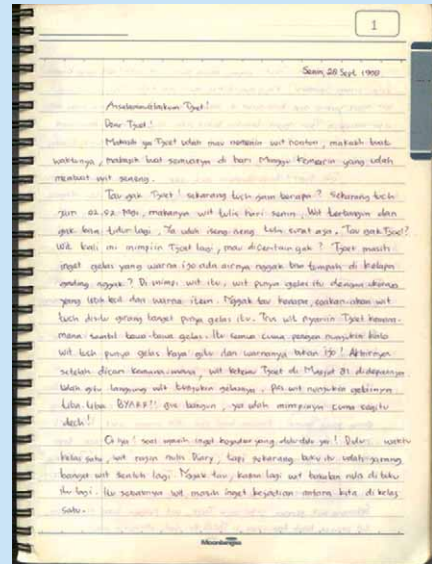 1
Senin, 28 Sept. 1998
Assalamualaikum Tjoet!
Dear Tjoet!
Makasih ya Tjoet udah mau nemenin wit nonton, makasih buat
waktunya, makasih buat semuanya di hari Minggu kemarin yang udah
membuat wit seneng.
Tau gak Tjoet! sekarang tuch jam berapa? Sekarang tuch
jam 02.02 Pagi, makanya wit tulis hari senin, Wit terbangun dan
gak bisa tidur lagi. Ya udah iseng-iseng tulis surat aja. Tau gak Tjoet?
wit kali ini mimpiin Tjoet lagi, mau diceritain gak? Tjoet masih
inget gelas yang warna ijo ada airnya nggak bisa tumpah di kelapa
gading nggak? Di mimpi wit itu, wit punya gelas itu dengan ukuran
yang lebih kecil dan warna item. Nggak tau kenapa,
wit tuch girang banget punya gelas itu. Trus wit nyariin Tjoet kemana-
mana sambil bawa-bawa gelas. Itu semua cuma pengen nunjukin kalo
wit tuch punya gelas kaya gitu dan warnanya bukan ijo! Akhirnya
setelah dicari kemana-mana, wit ketemu Tjoet di Masjid
udah gitu langsung wit tunjukin gelasnya. Pas wit nunjukin gelasnya
tiba-tiba BYARR!! gue bangun, ya udah mimpinya cuma segitu
dech!
Oh ya! saat masih inget kejadian yang dulu-dulu ya! Dulu waktu
kelas satu, wit rajin nulis Diary, tapi sekarang buku itu udah jarang
banget wit sentuh lagi. Nggak tau, kapan lagi wit bakalan nulis di buku
itu lagi. Itu sebabnya wit masih inget kejadian antara kita di kelas
satu.